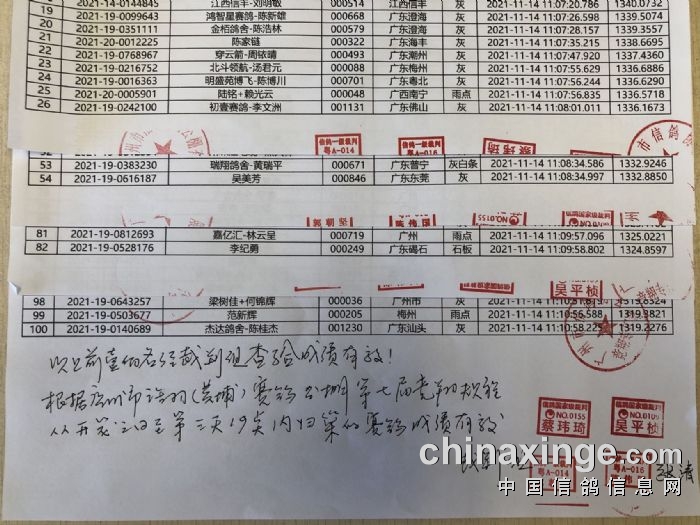 2021-14-0144845 江西信丰-刘明敏 000514 江西信丰 灰 2021-11-14 11:07:20.786 1340.0732
19 2021-19-0099643 鸿智星赛鸽-陈新雄 000668 广东澄海 灰 2021-11-14 11:07:26.598 1339.5074
20 2021-19-0351111 金栢鸽舍-陈浩林 000579 广东澄海 灰 2021-11-14 11:07:28.157 1339.3557
21 2021-20-0012225 陈家鏈 000322 广东海丰 灰 2021-11-14 11:07:35.215 1338.6695
22 2021-19-0768967 穿云箭-周依晴 000493 广东潮州 灰 2021-11-14 11:07:47.920 1337.4360
23 2021-19-0216752 北斗领航-汤君元 000088 广东梅州 灰 2021-11-14 11:07:55.629 1336.6886
24 2021-19-0016363 明盛苑博飞-陈博川 000701 广东粤北 灰 2021-11-14 11:07:56.244 1336.6290
25 2021-20-0005901 陆铭+赖光云 000048 广西南宁 雨点 2021-11-14 11:07:56.829 1336.5718
26 2021-19-0242100 初壹赛鸽-李文洲 001131 广东佛山 灰 2021-11-14 11:08:01.011 1336.1673
53 2021-19-0383230 瑞翔鸽舍-黄瑞平 000671 广东普宁 灰白条 2021-11-14 11:08:34.586 1332.9246
54 2021-19-0616187 吴美芳 000846 广东东莞 灰 2021-11-14 11:08:34.997 1332.8850
81 2021-19-0812693 嘉亿汇-林云呈 000719 广州 雨点 2021-11-14 11:09:57.096 1325.0221
82 2021-19-0528176 李纪勇 000249 广东碣石 石板 2021-11-14 11:09:58.802 1324.8597
98 2021-19-0643257 梁树佳+何锦辉 000036 广州市 灰 2021-11-14
99 2021-19-0503677 范新辉 000205 梅州 雨点 2021-11-14 11:10:56.588 1319.3821
100 2021-19-0140689 杰达鸽舍-陈桂杰 001230 广东汕头 灰 2021-11-14 11:10:58.225 1319.2276
以上前壹佰名经裁判组查验成绩有效!
根据广州市信鸽(黄埔)赛鸽公棚第七届竞翔规程
从开笼之日至第三天19点内归巢的赛鸽成绩有效
信鸽国家级裁判 NO.0155 蔡玮琦
信鸽国家级裁判 吴平桢
粤A-014
粤A-016
chinaxinge.com
中国信鸽信息网